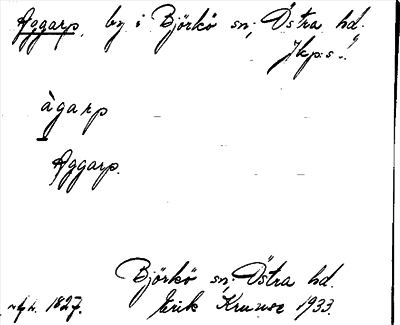 Aggarp, by i Björkö sn, Östra hd.
Jkp:s l.
àgarp
Aggarp.
Björkö sn, Östra hd.
1827. Erik Kruuse 1933.